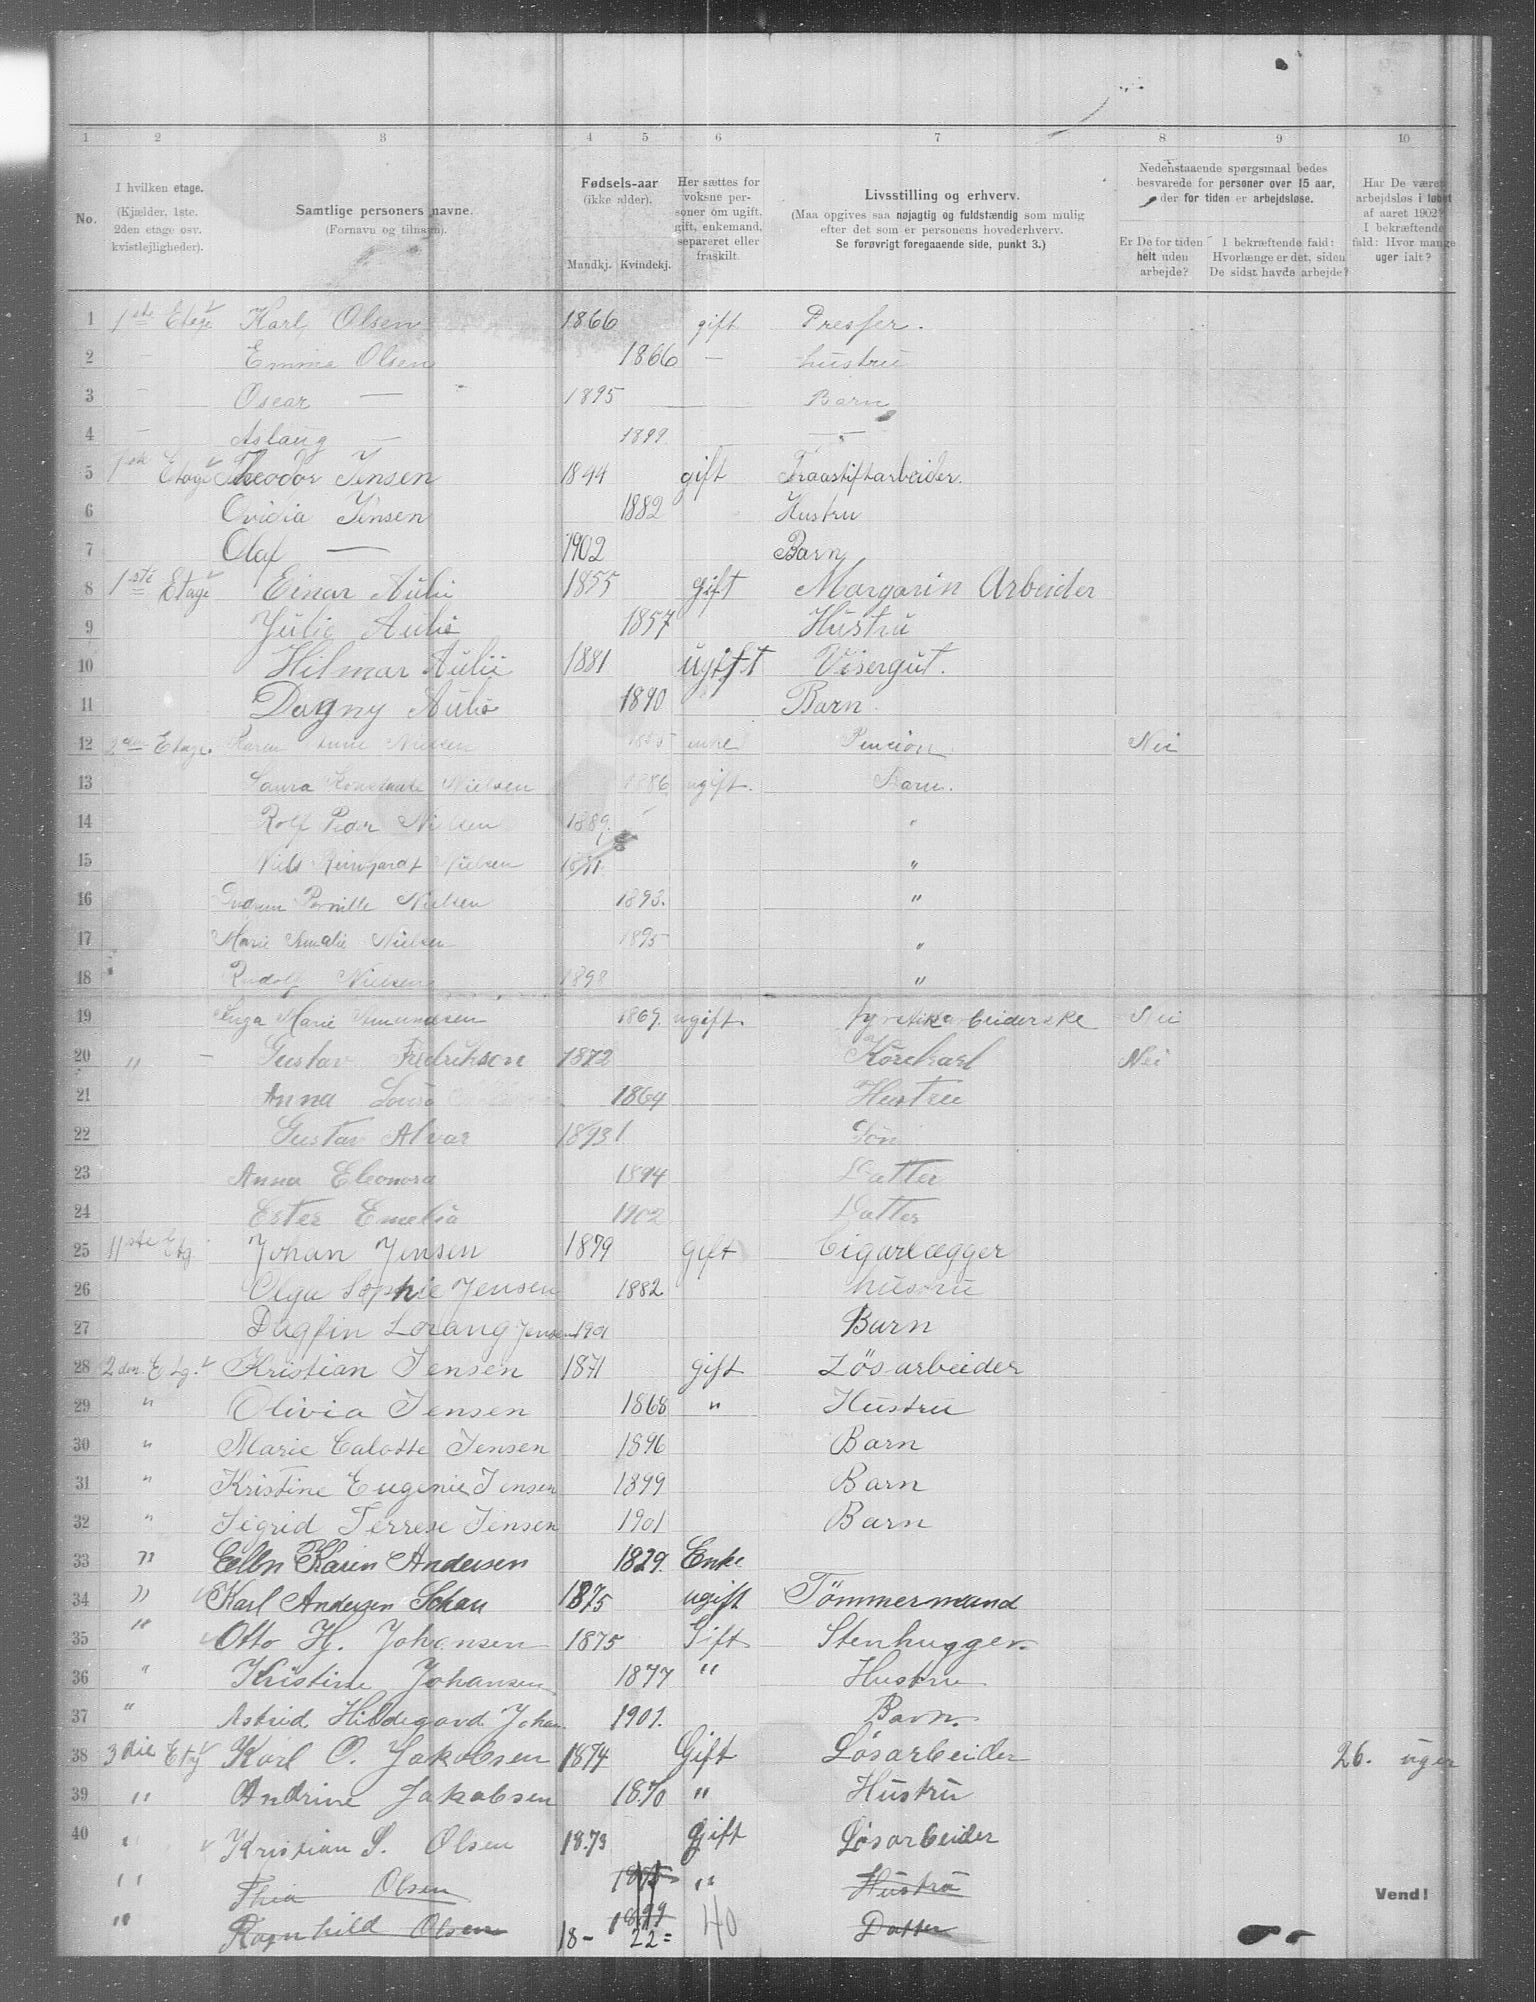 1 2 3 4 5 6 7 8 9 10
No.
I hvilken etage.
(Kjælder, 1ste.
2den etage osv.
kvistlejligheder).
Samtlige personers navne.
(Fornavn og tilnavn).
Fødsels-aar
(ikke alder).
Mandkj. Kvindekj.
Her sættes for
voksne per-
soner om ugift,
gift, enkemand,
separeret eller
fraskilt.
Livsstilling og erhverv.
(Maa opgives saa nøjagtig og fuldstændig som mulig
efter det som er personens hovederhverv.
Se forøvrigt foregaaende side, punkt 3.)
Nedenstaaende spørgsmaal bedes
besvarede for personer over 15 aar,
der for tiden er arbejdsløse.
Er De for tiden
helt uden
arbejde?
I bekræftende fald:
Hvorlænge er det, siden
De sidst havde arbejde?
Har De været
arbejdsløs i løbet
af aaret 1902?
I bekræftende
fald: Hvor mange
uger ialt?
1 1ste Etage Karl Olsen 1866 gift Presser.
2 – Emma Olsen 1866 — hustru
3 – Oscar — 1895 Barn
4 – Aslaug — 1899 —
5 1ste Etage Theodor Jensen 1844 gift Traastiftarbeider.
6 Ovidia Jensen 1882 Hustru
7 Olaf — 1902 Barn
8 1ste Etage Einar Aulie 1855 gift Margarin Arbeider
9 Julie Aulie 1857 Hustru
10 Hilmar Aulie 1881 ugift Visergut.
11 Dagny Aulie 1890 Barn.
12 2den Etage. Karen Nielsen enke Pension Nei
13 Laura Nielsen 1886 ugift. Barn.
14 Rolf Peder Nielsen 1889. "
15 Niels Nielsen 1891. "
16 Gudrun Pernille Nielsen 1893. "
17 Marie Amalie Nielsen 1895 "
18 Rudolf Nielsen 1898 "
19 Inga Marie Amundsen 1869. ugift Nei
20 " – Gustav Fredrikson 1872 Körekarl Nei
21 Anna 1864 Hustru
22 Gustav Alvar 1893 Sön
23 Anna Eleonora 1894 Datter
24 Ester Emelia 1902 Datter
25 11ste Etg. Johan Jensen 1879 gift Cigarlægger
26 Olga Sophie Jensen 1882 husoru
27 Dagfin Lorang Jensen 1901 Barn
28 2den. Etg. Kristian Jensen 1871 gift Lösarbeider
29 " Olivia Jensen 1868 " Hustru
30 " Marie Calotte Jensen 1896 Barn
31 " Kristine Eugenie Jensen 1899 Barn
32 " Sigrid Terrese Jensen 1901 Barn
33 " Ellen Karin Andersen 1829. Enke
34 " Karl Andersen Schau 1875 ugift Tömmermand
35 " Otto H. Johansen 1875 Gift Stenhugger
36 " Kristine Johansen 1877 " Hustru
37 " Astrid Hildegard Johan. 1901. Barn.
38 3die Etg Karl O. Jakobsen 1874 Gift Lösarbeider 26. uger
39 " Andrine Jakobsen 1870 " Hustru
40 " Kristian S. Olsen 1873 Gift Lösarbeider
" Thia Olsen 1875 " Hustru
Vend!
" Ragnhild Olsen 1899 Datter
18– 22= 40